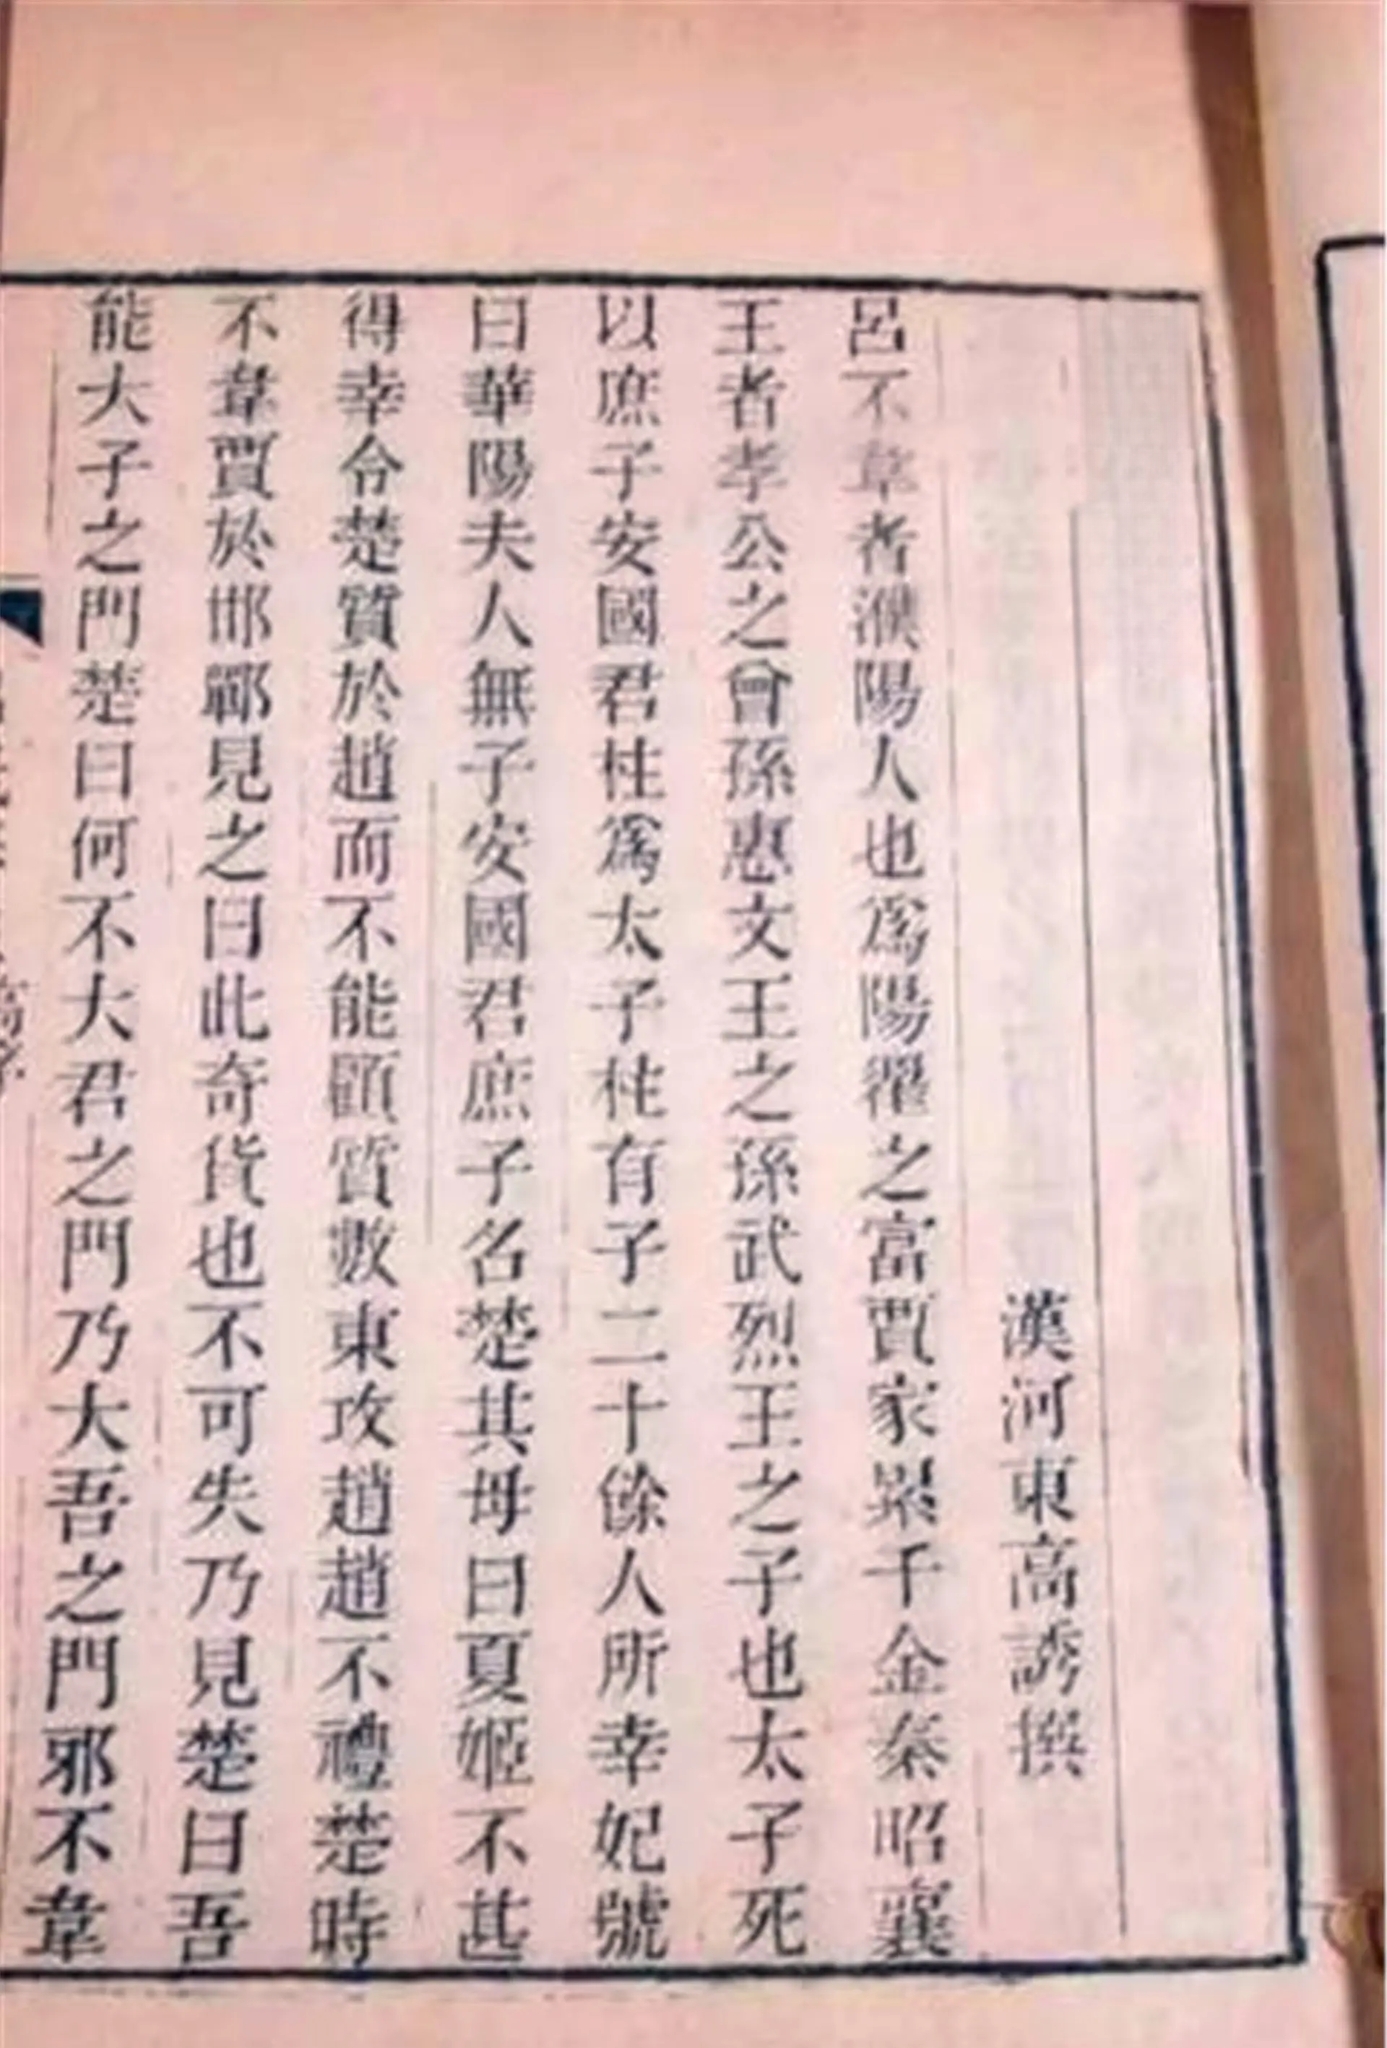 漢河東高誘撰
呂不韋者濮陽人也爲陽翟之富賈家累千金秦昭襄
王者孝公之曾孫惠文王之孫武烈王之子也太子死
以庶子安國君柱爲太子柱有子二十餘人所幸妃號
曰華陽夫人無子安國君庶子名楚其母曰夏姬不甚
得幸令楚質於趙而不能顧質數東攻趙趙不禮楚時
不韋賈於邯鄲見之曰此奇貨也不可失乃見楚曰吾
能大子之門楚曰何不大君之門乃大吾之門邪不韋